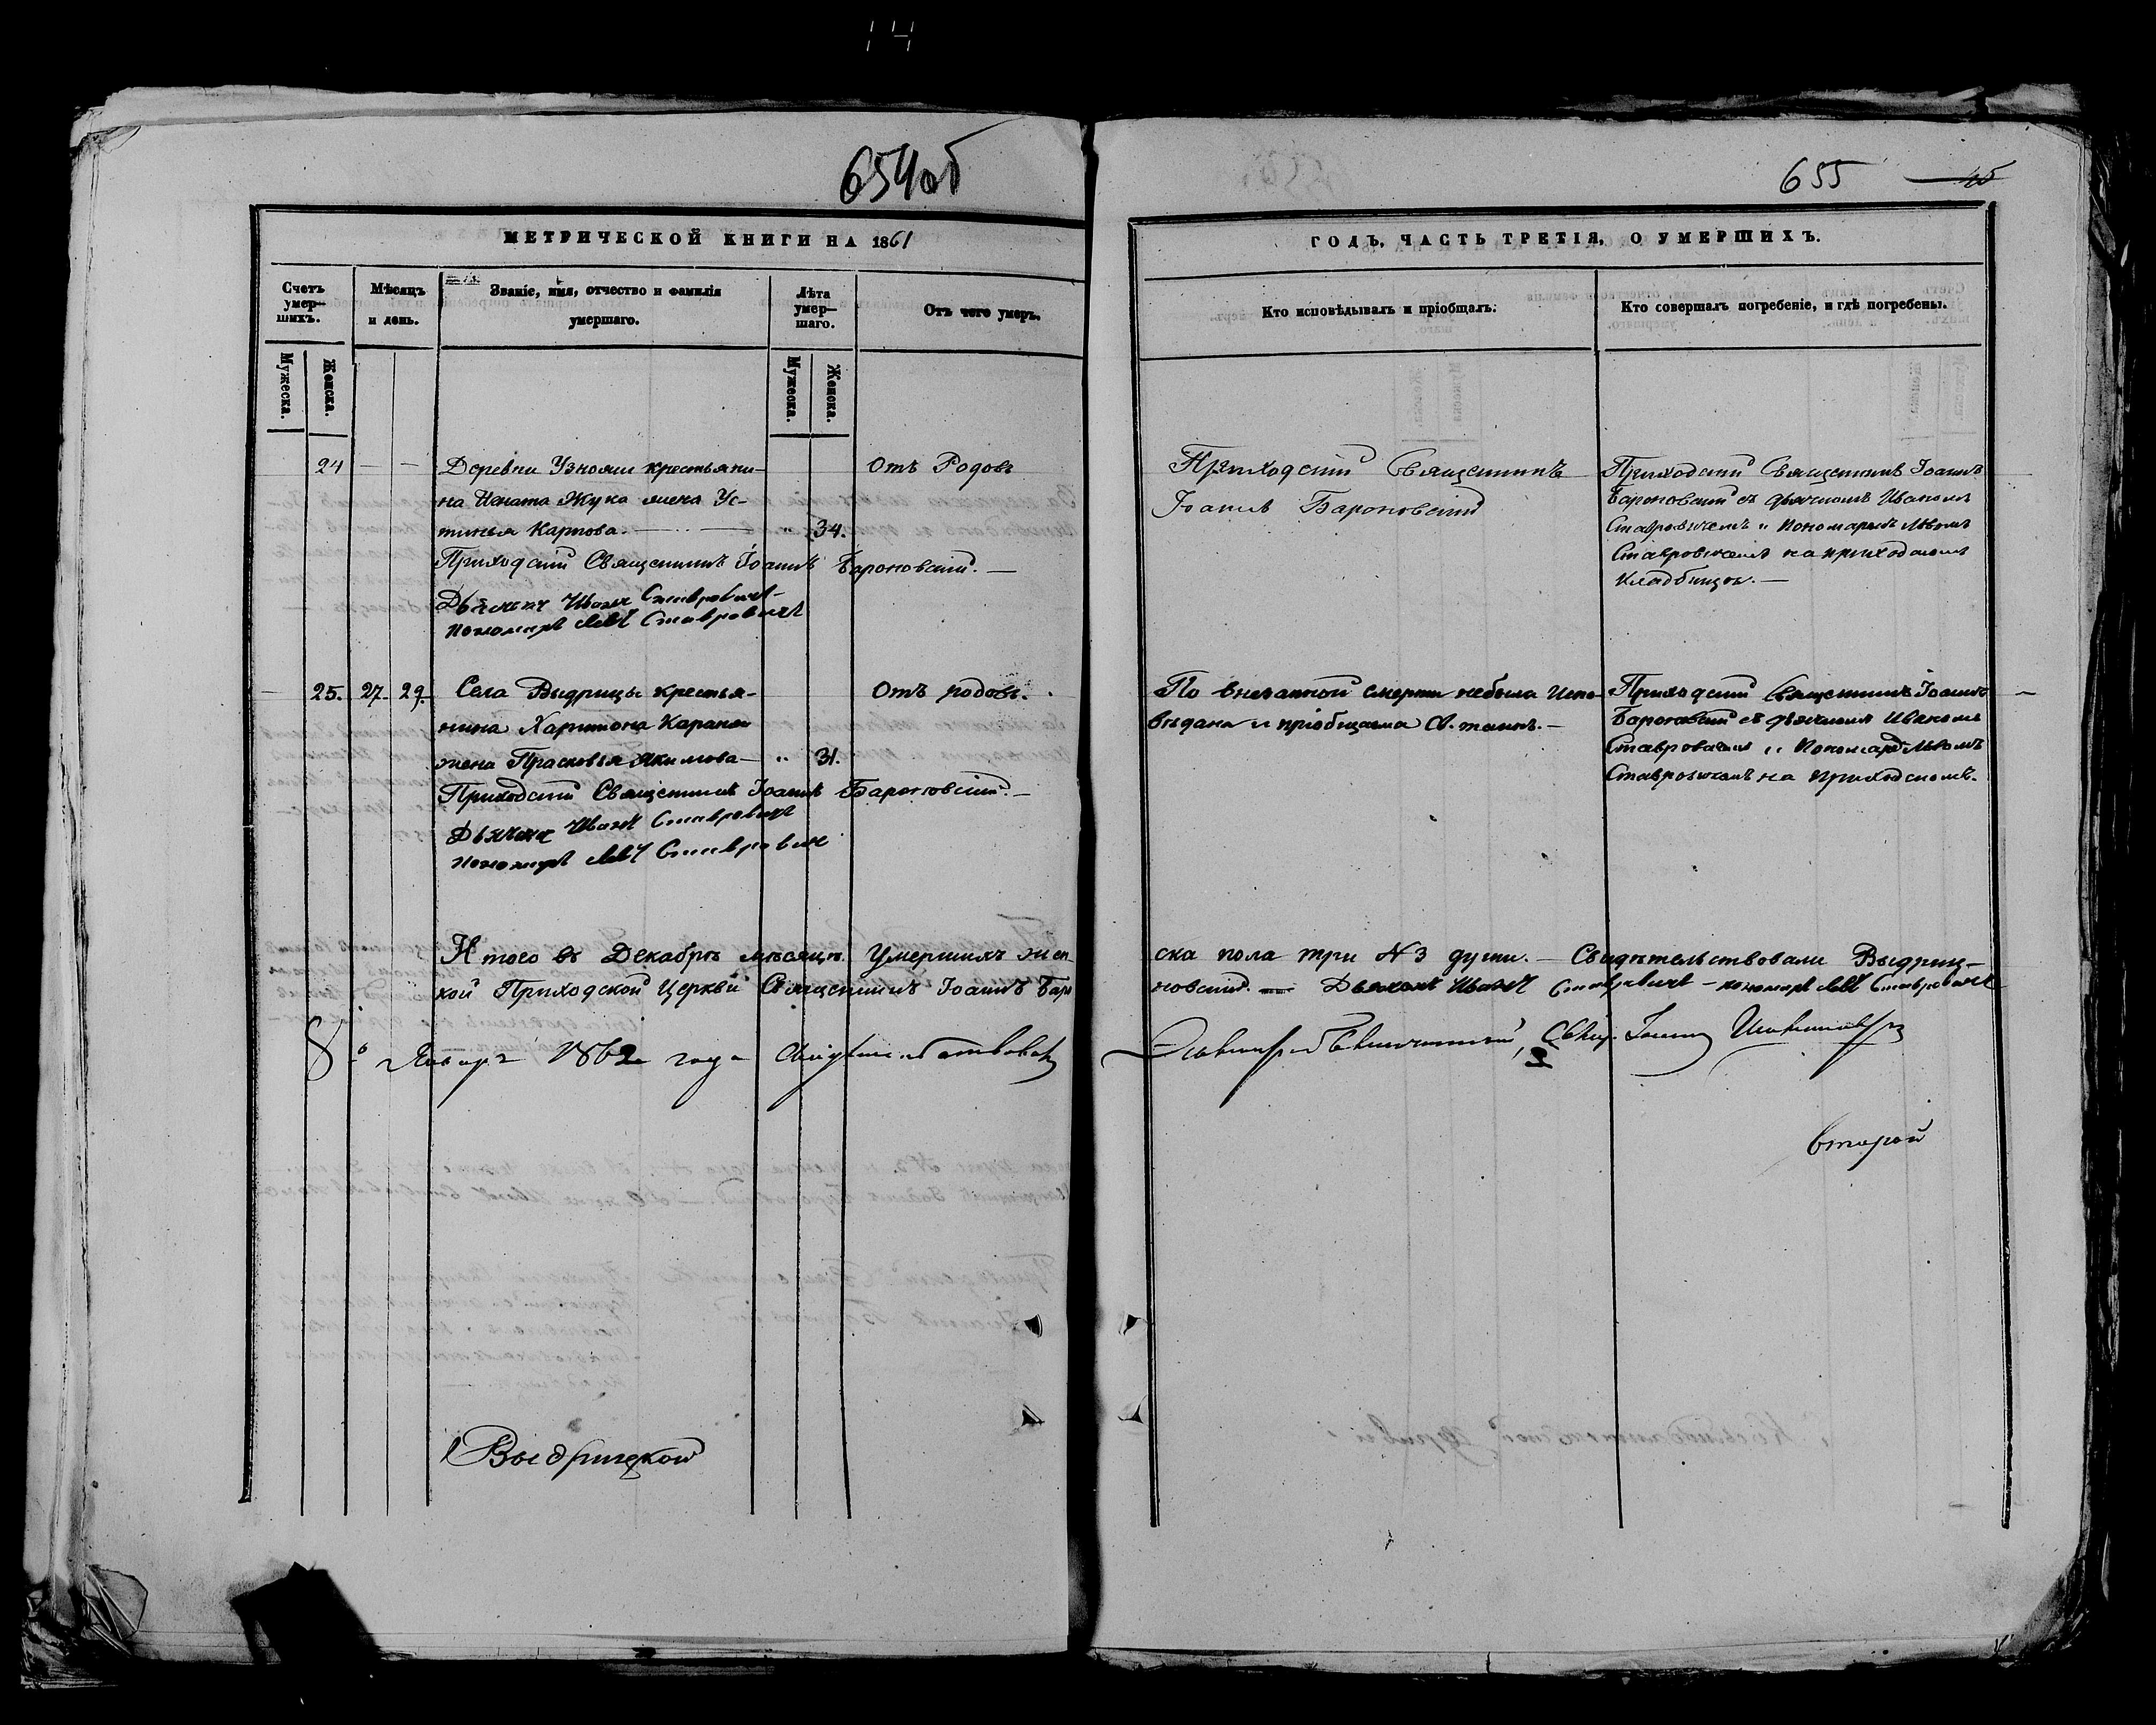 14
654об
МЕТРИЧЕСКОЙ КНИГИ НА 1861
Счетъ умер-шихъ.
Мѣсяцъ и день.
Званіе, имя, отчество и фамилія умершаго.
Лѣта умер-шаго.
Отъ чего умеръ.
Мужеска.
Женска.
Мужеска.
Женска.
24 — — Деревни Узнояи крестьяни- Отъ Родовъ
на Игната Жука жена Ус-
тинья Карпова. — „ 34.
Приходскій Священникъ Іоаннъ Бароновскій. —
Дьячекъ Иванъ Ставровичъ
Пономарь Левъ Ставровичъ
25. 27. 29. Села Выдрицы крестья- Отъ родовъ.
нина Харитона Караня
жена Прасковья Якимова — „ 31.
Приходскій Священникъ Іоаннъ Бароновскій. —
Дьячекъ Иванъ Ставровичъ
Пономарь Левъ Ставровичъ
Итого въ Декабрѣ мѣсяцѣ Умершихъ жен
кой Приходской Церкви Священникъ Іоаннъ Баро
8о Января 1862 года Свидѣтельствовалъ
Выдрицкой
655 45
ГОДЪ, ЧАСТЬ ТРЕТІЯ, О УМЕРШИХЪ.
Кто исповѣдывалъ и пріобщалъ.
Кто совершалъ погребеніе, и гдѣ погребены.
Приходскій Священникъ
Іоаннъ Бароновскій
Приходскій Священникъ Іоаннъ
Бароновскій съ дьячкомъ Иваномъ
Ставровичемъ и Пономаремъ Львомъ
Ставровичемъ на приходскомъ
кладбищѣ. —
По внезапной смерти небыла испо-
вѣдана и пріобщаема Св. таинъ. —
Приходскій Священникъ Іоаннъ
Бароновскій съ дьячкомъ Иваномъ
Ставровичемъ и Пономаремъ Львомъ
Ставровичемъ на приходскомъ.
ска пола три №3 души. — Свидѣтельствовали Выдриц-
новскій. — Дьячекъ Иванъ Ставровичъ — пономарь Левъ Ставровичъ
Свящ. Іоаннъ
2
второй